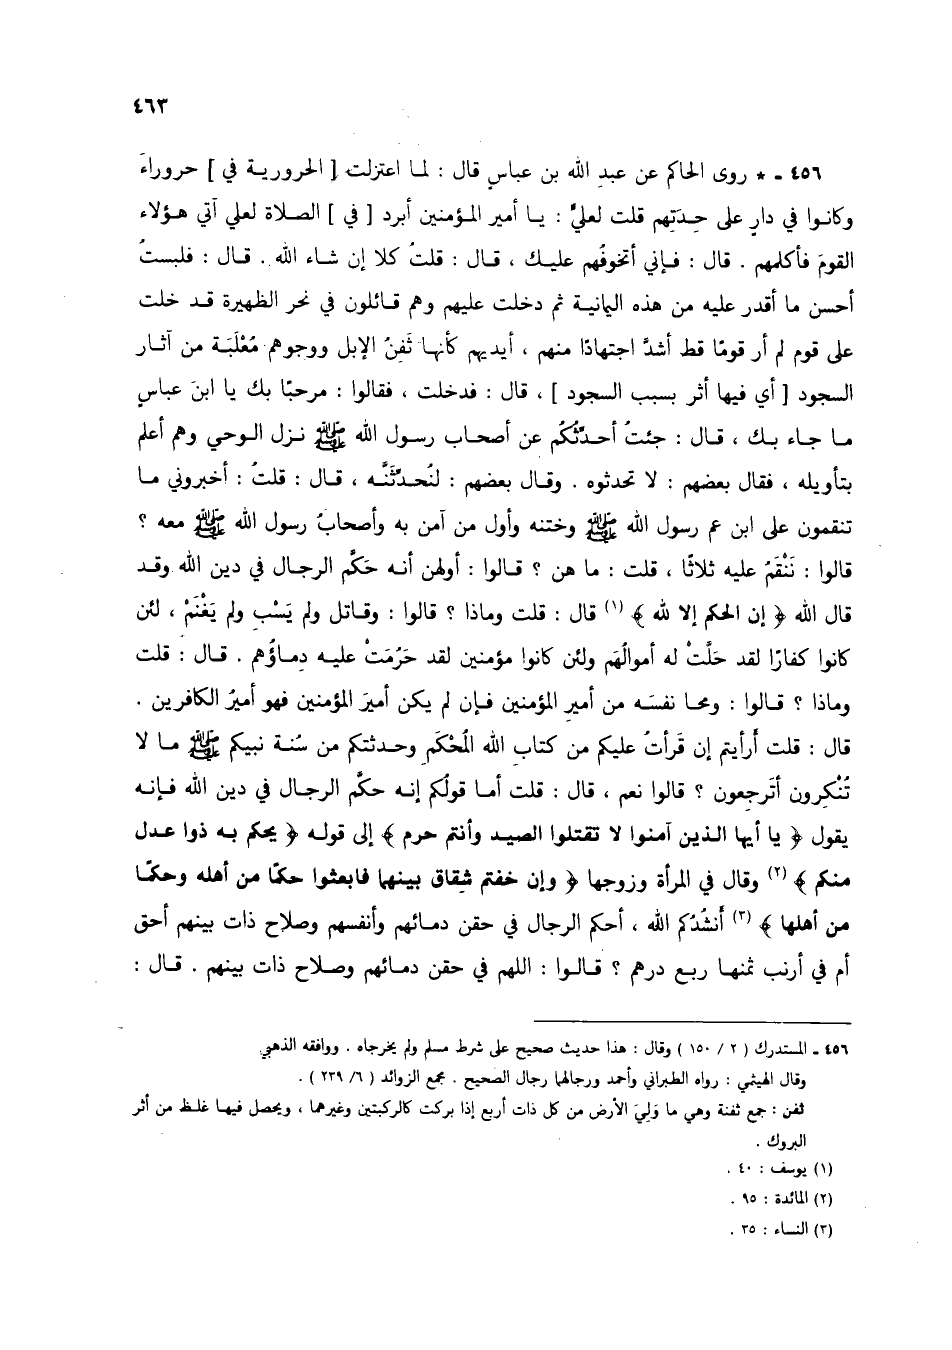 ٤٦٣
٤٥٦ - * روى الحاكم عن عبدِ الله بن عباسٍ قال : لما اعتزلت [ الحرورية في ] حروراءَ
وكانوا في دارٍ على حِدَتِهم قلت لعليٍّ : يا أمير المؤمنين أبرد [ في ] الصلاة لعلي آتي هؤلاء
القومَ فأكلمهم . قال : فإني أتخوفُهم عليك ، قال : قلتُ كلا إن شاء الله . قال : فلبستُ
أحسن ما أقدر عليه من هذه اليمانية ثم دخلت عليهم وهم قائلون في نحر الظهيرة قد خلت
على قوم لم أر قومًا قط أشدَّ اجتهادًا منهم ، أيديهم كأنها ثَفِنُ الإبل ووجوهم مُعْلَبَة من آثار
السجود [ أي فيها أثر بسبب السجود ] ، قال : فدخلت ، فقالوا : مرحبًا بك يا ابنَ عباسٍ
ما جاء بك ، قال : جئتُ أحدّثُكُم عن أصحاب رسول الله ﷺ نزل الوحي وهم أعلم
بتأويله ، فقال بعضهم : لا تحدثوه . وقال بعضهم : لنُحدّثنَّه ، قال : قلتُ : أخبروني ما
تنقمون على ابن عم رسول الله ﷺ وختنه وأول من آمن به وأصحابُ رسول الله ﷺ معه ؟
قالوا : نَنْقَمُ عليه ثلاثًا ، قلت : ما هن ؟ قالوا : أولهن أنه حَكَّم الرجال في دين الله وقد
قال الله ﴿ إن الحكم إلا لله ﴾ (١) قال : قلت وماذا ؟ قالوا : وقاتل ولم يَسْب ولم يَغْنَمْ ، لئن
كانوا كفارًا لقد حلَّتْ له أموالُهَم ولئن كانوا مؤمنين لقد حَرُمَتْ عليه دماؤُهم . قال : قلت
وماذا ؟ قالوا : ومحا نفسَه من أمير المؤمنين فإن لم يكن أميرَ المؤمنين فهو أميرُ الكافرين .
قال : قلت أرأيتم إن قَرأتُ عليكم من كتاب الله المُحْكَم وحدثتكم من سُنة نبيكم ﷺ ما لا
تُنْكِرون أتَرجعون ؟ قالوا نعم ، قال : قلت أما قولُكم إنه حكَّم الرجال في دين الله فإنه
يقول ﴿ يا أيها الذين آمنوا لا تقتلوا الصيد وأنتم حرم ﴾ إلى قوله ﴿ يحكم به ذوا عدل
منكم ﴾ (٢) وقال في المرأة وزوجها ﴿ وإن خفتم شقاق بينهما فابعثوا حكمًا من أهله وحكمًا
من أهلها ﴾ (٣) أَنشُدُكم الله ، أحكم الرجال في حقن دمائهم وأنفسهم وصلاح ذات بينهم أحق
أم في أرنب ثمنها ربع درهم ؟ قالوا : اللهم في حقن دمائهم وصلاح ذات بينهم . قال :
٤٥٦ - المستدرك ( ٢ / ١٥٠ ) وقال : هذا حديث صحيح على شرط مسلم ولم يخرجاه . ووافقه الذهبي
وقال الهيثمي : رواه الطبراني وأحمد ورجالهما رجال الصحيح . مجمع الزوائد ( ٦/ ٢٣٩ ) .
ثفن : جمع ثفنة وهي ما وَلِيَ الأرض من كل ذات أربع إذا بركت كالركبتين وغيرهما ، ويحصل فيها غلظ من أثر
البروك .
(١) يوسف : ٤٠ .
(٢) المائدة : ٩٥ .
(٣) النساء : ٣٥ .